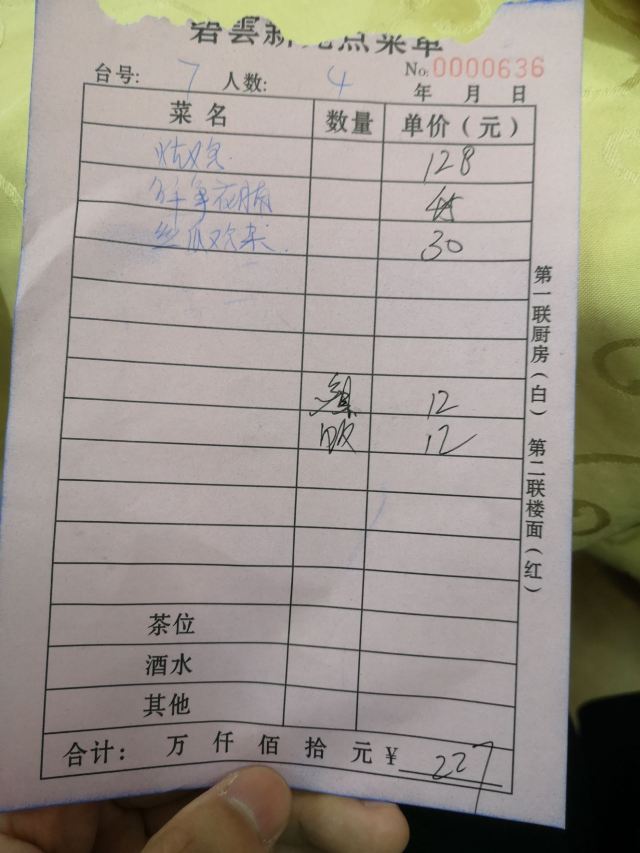 点菜单
台号: 7 人数: 4 No. 0000636
年 月 日
菜名 数量 单价（元）
128
45
丝瓜 30
12
饭 12
茶位
酒水
其他
合计: 万 仟 佰 拾 元 ¥ 227
第一联厨房（白） 第二联楼面（红）